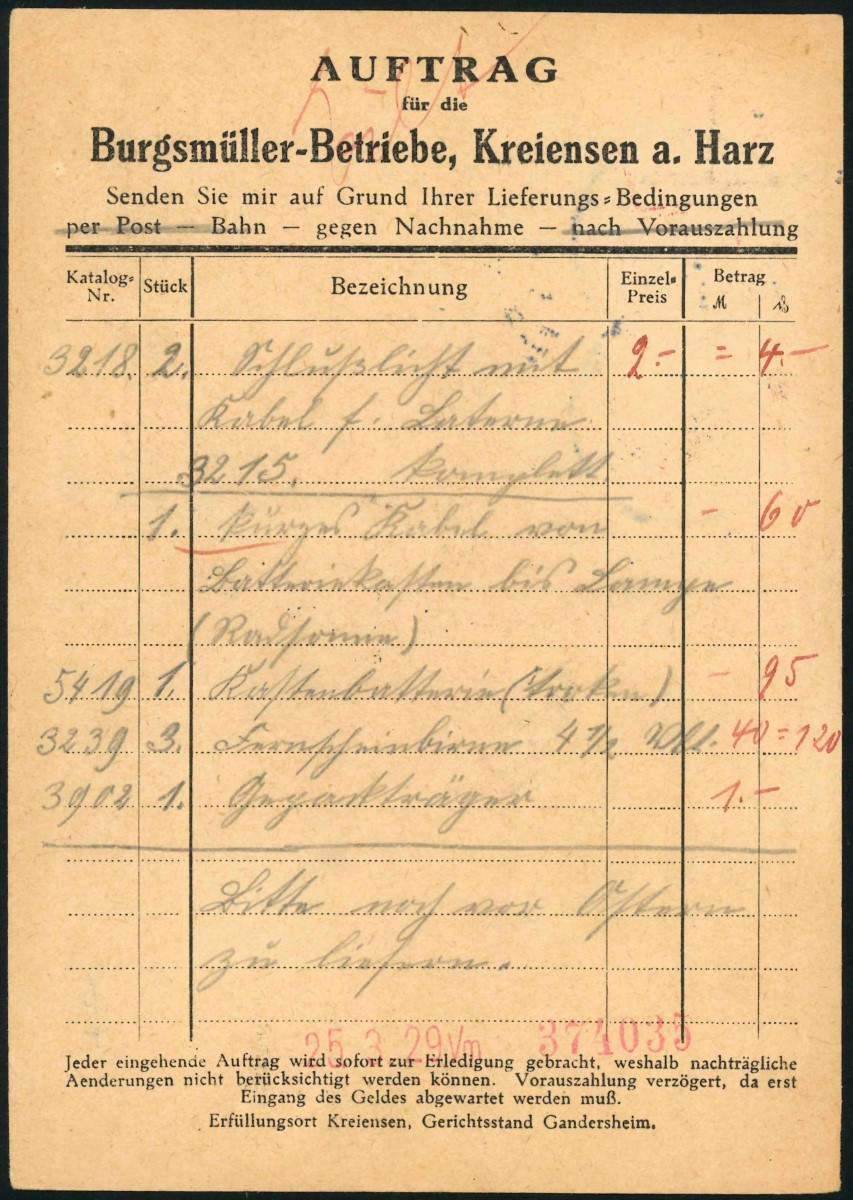 AUFTRAG
für die
Burgsmüller-Betriebe, Kreiensen a. Harz
Senden Sie mir auf Grund Ihrer Lieferungs-Bedingungen
per Post — Bahn — gegen Nachnahme — nach Vorauszahlung
Katalog-Nr. Stück Bezeichnung Einzel-Preis Betrag M ₰
3218. 2. Schlußlicht mit 2.- = 4.-
Kabel f. Laterne
3215. komplett
1. kurzes Kabel von - 60
Batteriekasten bis Lampe
(Radsonne)
5419 1. Kastenbatterie (troken) - 95
3239 3. Fernscheinbirne 4 1/2 Vlt. 40 = 120
3902 1. Gepäckträger 1.-
Bitte noch vor Ostern
zu liefern.
25.3.29Vm 374035
Jeder eingehende Auftrag wird sofort zur Erledigung gebracht, weshalb nachträgliche
Aenderungen nicht berücksichtigt werden können. Vorauszahlung verzögert, da erst
Eingang des Geldes abgewartet werden muß.
Erfüllungsort Kreiensen, Gerichtsstand Gandersheim.